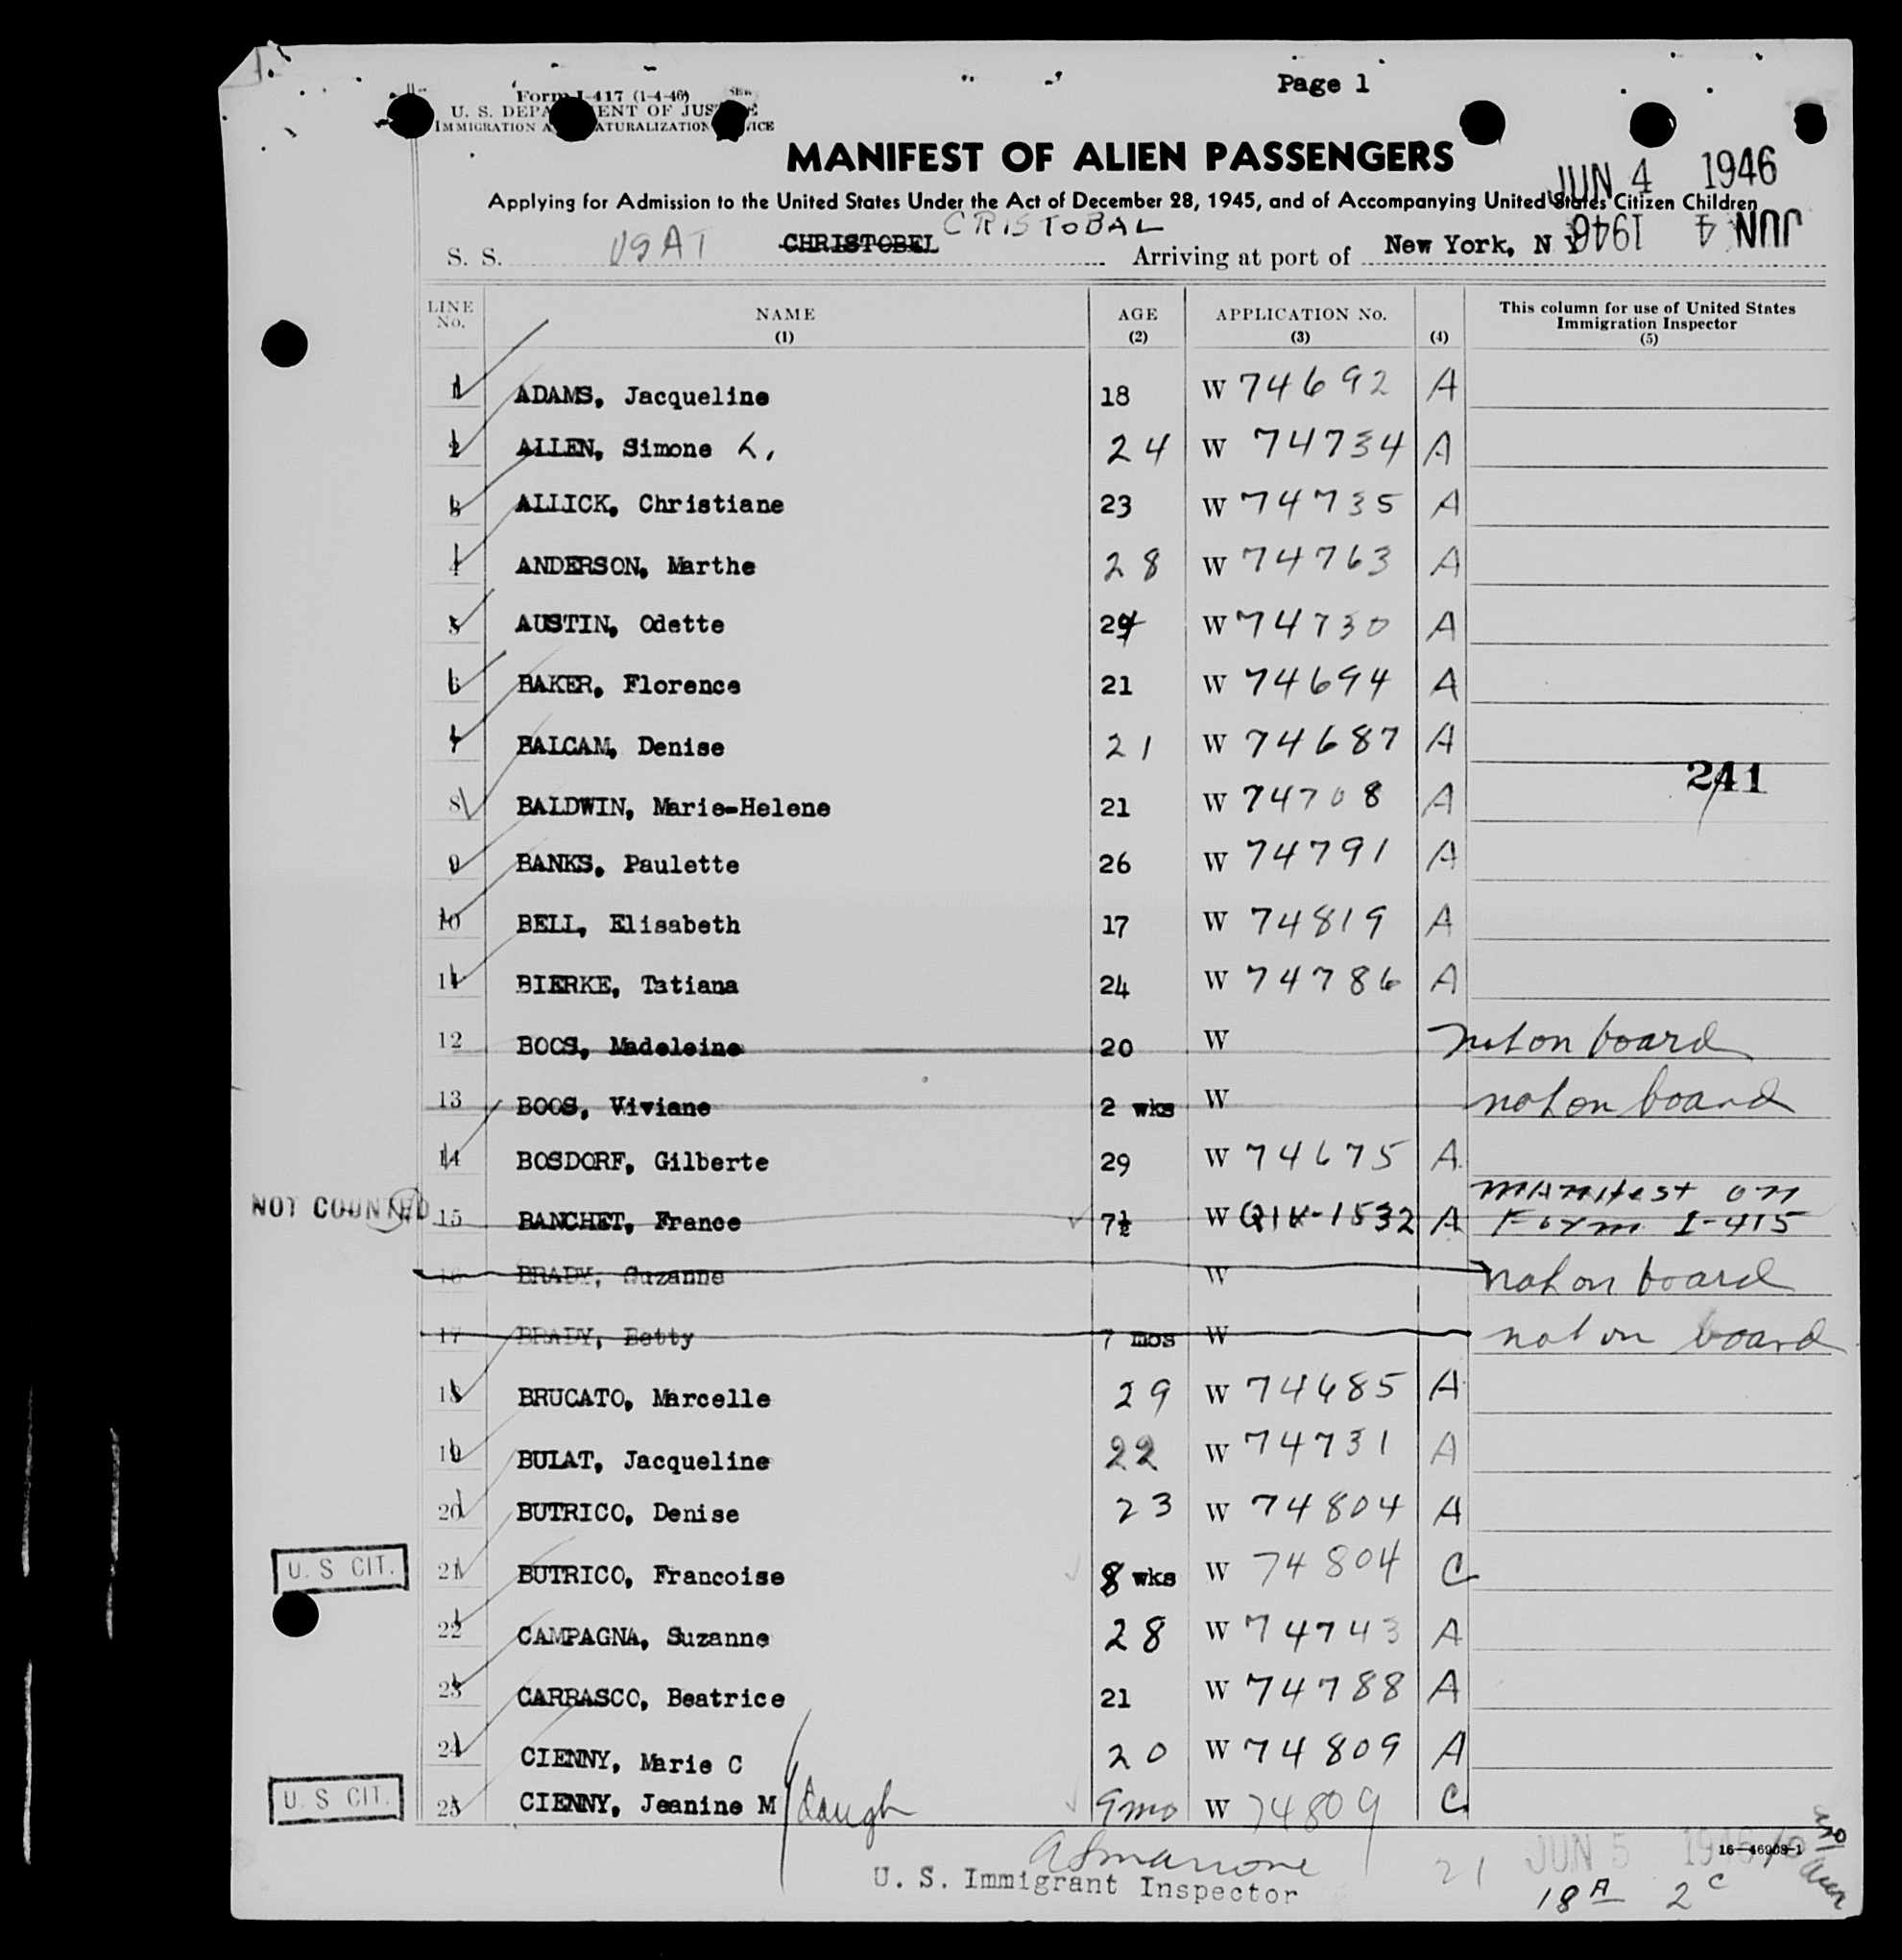 Page 1
Form I-417 (1-4-46)
U. S. DEPARTMENT OF JUSTICE
IMMIGRATION AND NATURALIZATION SERVICE
MANIFEST OF ALIEN PASSENGERS
JUN 4 1946
Applying for Admission to the United States Under the Act of December 28, 1945, and of Accompanying United States Citizen Children
JUN 4 1946
S. S. USAT CHRISTOBEL CRISTOBAL Arriving at port of New York, N Y
LINE No. NAME (1) AGE (2) APPLICATION No. (3) (4) This column for use of United States Immigration Inspector (5)
1 ADAMS, Jacqueline 18 W 74692 A
2 ALLEN, Simone L. 24 W 74734 A
3 ALLICK, Christiane 23 W 74735 A
4 ANDERSON, Marthe 28 W 74763 A
5 AUSTIN, Odette 24 W 74730 A
6 BAKER, Florence 21 W 74694 A
7 BALCAM, Denise 21 W 74687 A
241
8 BALDWIN, Marie-Helene 21 W 74708 A
9 BANKS, Paulette 26 W 74791 A
10 BELL, Elisabeth 17 W 74819 A
11 BIERKE, Tatiana 24 W 74786 A
12 BOOS, Madeleine 20 W not on board
13 BOOS, Viviane 2 wks W not on board
14 BOSDORF, Gilberte 29 W 74675 A
NOT COUNTED 15 BANCHET, France 7½ W QIV-1532 A Manifest on Form I-415
16 BRADY, Suzanne W not on board
17 BRADY, Betty 7 mos W not on board
18 BRUCATO, Marcelle 29 W 74685 A
19 BULAT, Jacqueline 22 W 74731 A
20 BUTRICO, Denise 23 W 74804 A
U. S CIT. 21 BUTRICO, Francoise 8 wks W 74804 C
22 CAMPAGNA, Suzanne 28 W 74743 A
23 CARRASCO, Beatrice 21 W 74788 A
24 CIENNY, Marie C 20 W 74809 A
U. S CIT. 25 CIENNY, Jeanine M daugh 9mo W 74809 C
U. S. Immigrant Inspector
21
JUN 5 1946
16-46908-1
18 A 2 C